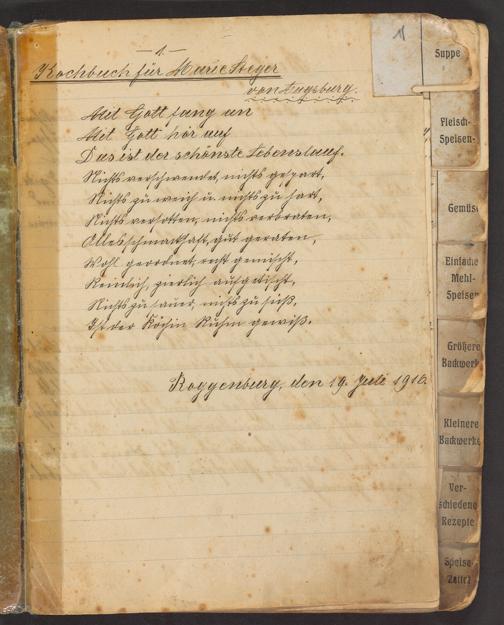 -1.-
Kochbuch für Marie Steger
von Augsburg.
Mit Gott fang an
Mit Gott hör auf
Das ist der schönste Lebenslauf.
Nichts verschwendet, nichts gespart,
Nichts zu weich u. nichts zu hart,
Nichts versotten, nichts verbraten,
Alles schmackhaft, gut geraten,
Wohl geordnet, recht gemischt,
Reinlich, zierlich aufgetischt,
Nichts zu sauer, nichts zu süß,
Ist der Köchin Ruhm gewiß.
Roggenburg, den 19. Juli 1910.
1
Suppe
Fleisch-
Speisen-
Gemüse
Einfache
Mehl-
Speisen
Größere
Backwerk
Kleinere
Backwerke
Ver-
schiedene
Rezepte
Speise-
Zettel